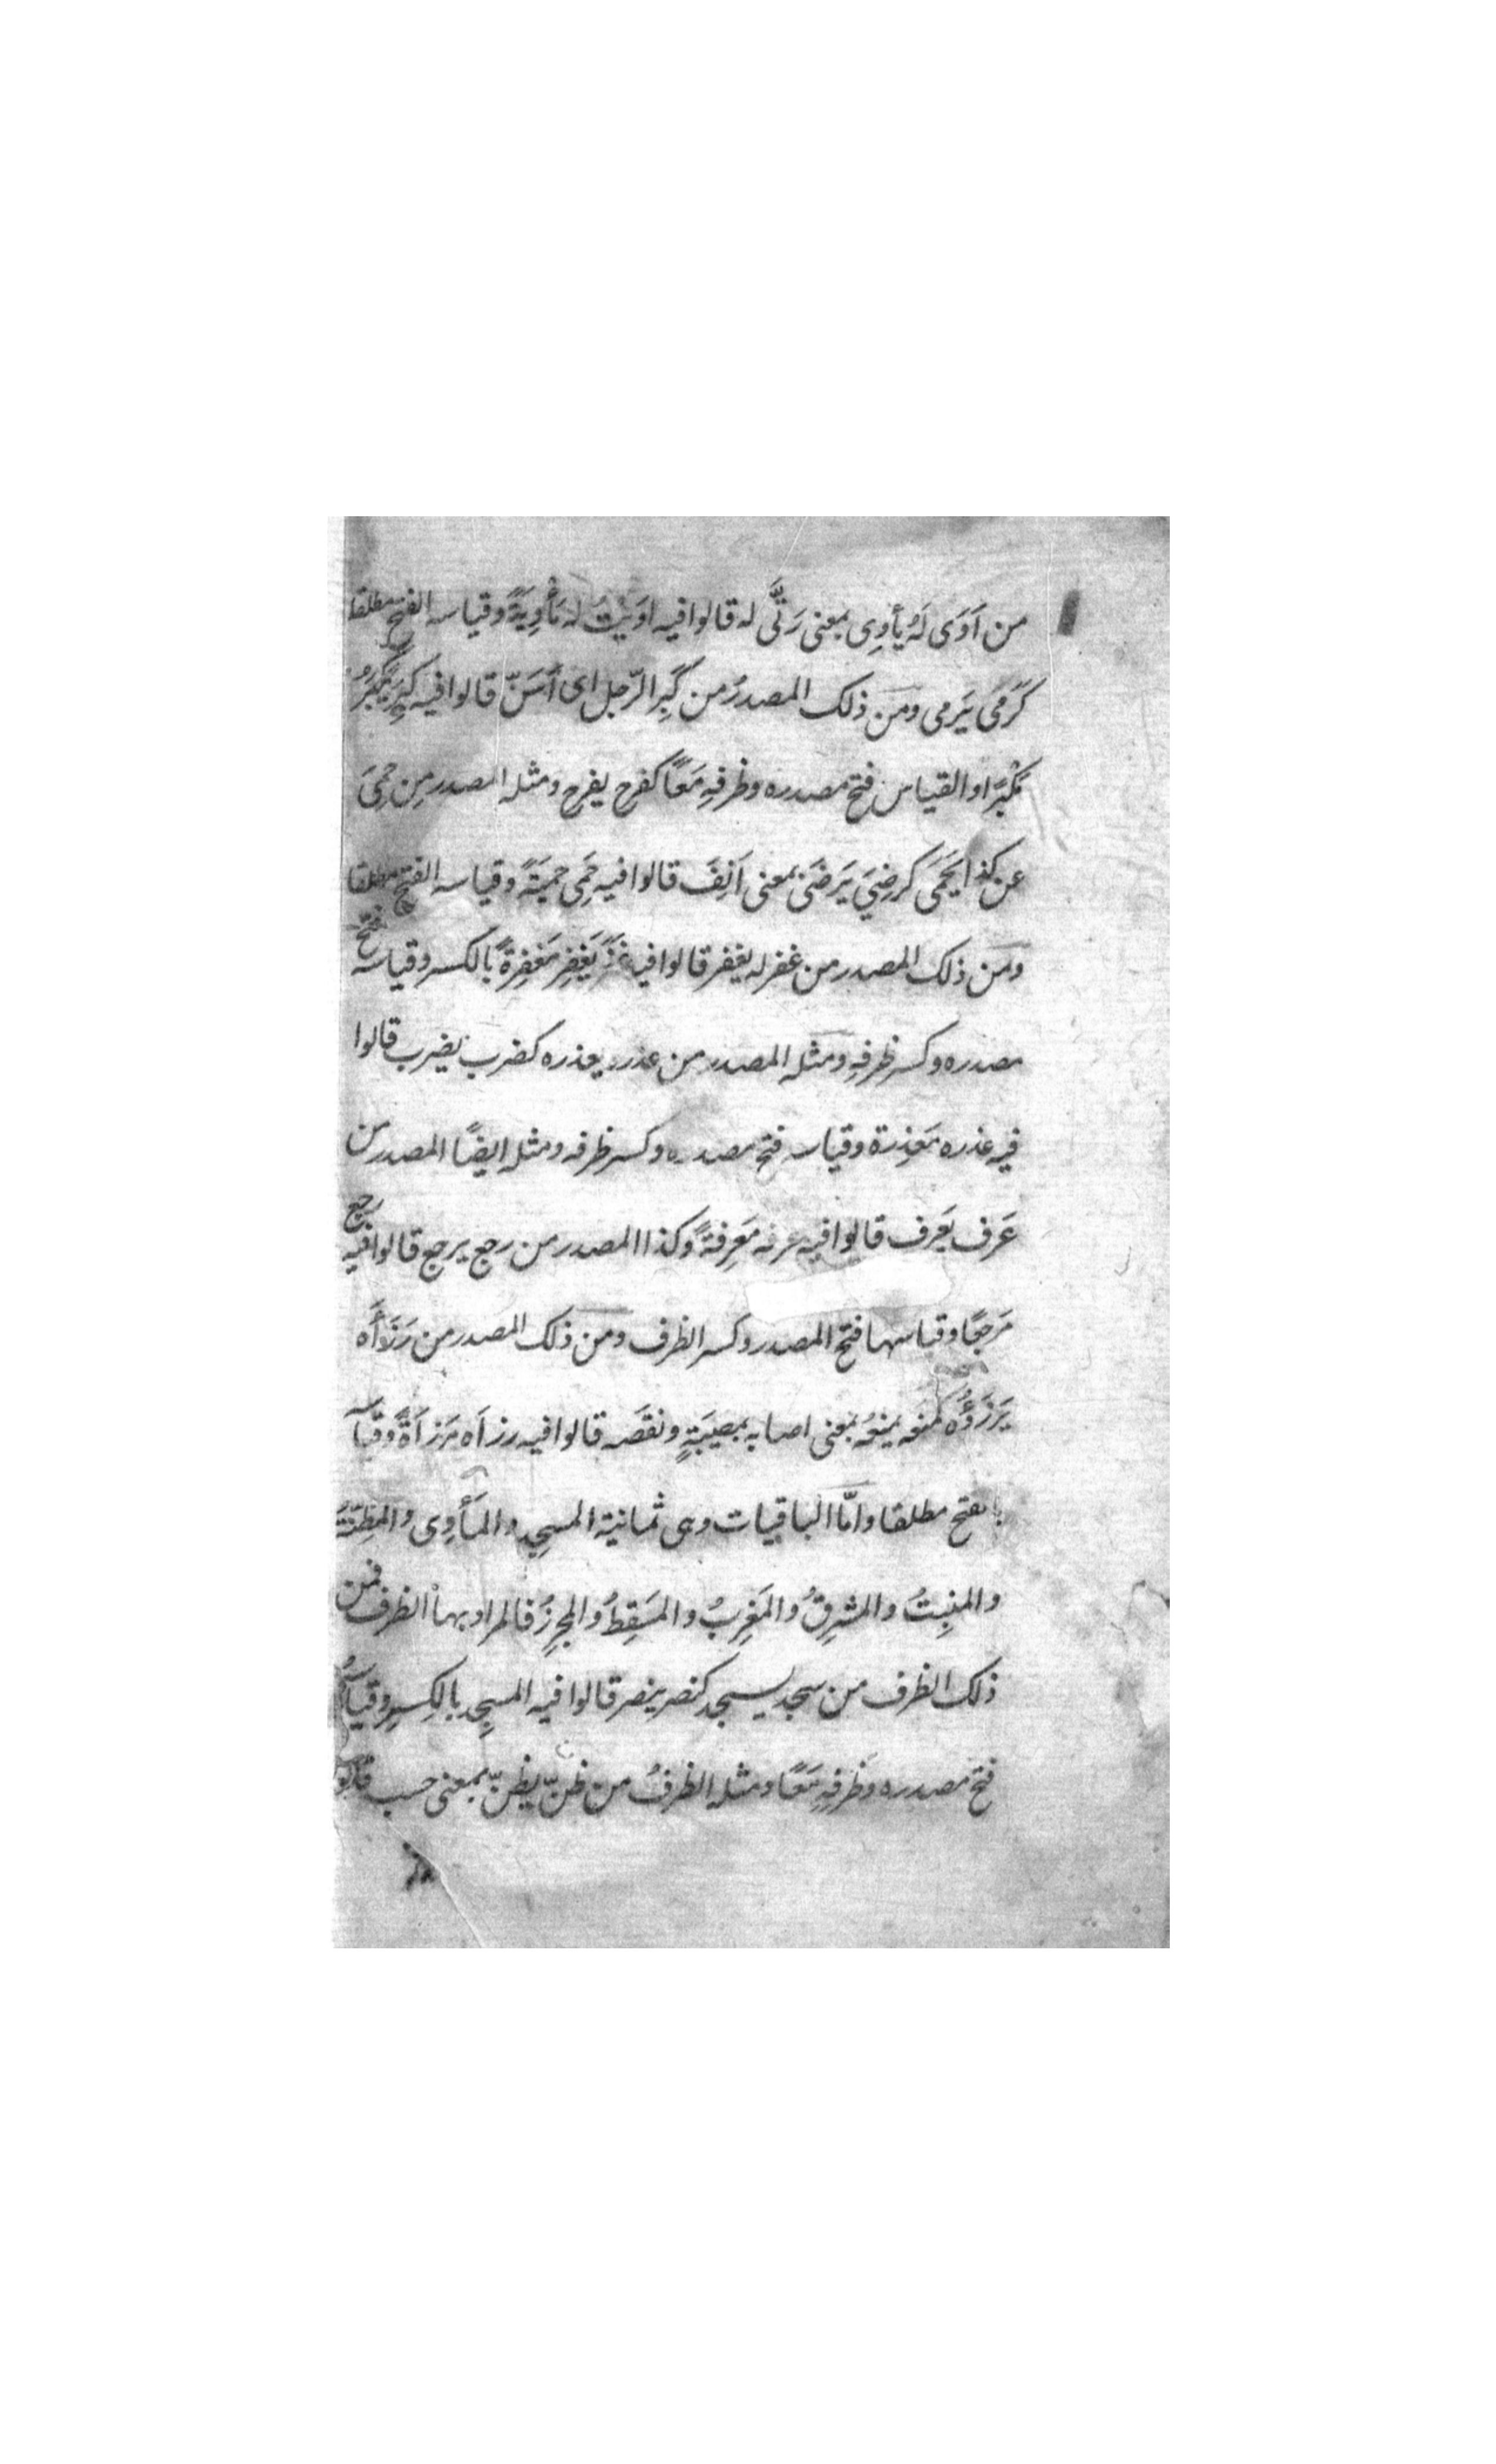 من اَوَى لَهُ يأوِى بمعنى رَثَّى له قالوا فيه اوَيْتُ له مَأْوِيَةً وقياسه الفتح مطلقا
كَرَمَى يَرمى ومن ذلك المصدرُ من كَبِرَ الرّجل اى أسَنّ قالوا فيه كَبِرَ يَكْبَرُ
مَكْبِرًا والقياس فتح مصدره وظرفهِ مَعًا كفرح يفرح ومثله المصدر مِن حَمِىَ
عن كذا يَحمَى كرضِيَ يَرضَى بمعنى اَنِفَ قالوا فيه حَمِى محمِيَةً وقياسه الفتح مطلقا
ومن ذلك المصدر من غفر له يغفر قالوا فيه غفَرَ يَغفِر مَغفِرةً بالكسر وقياسه فتح
مصدره وكسر ظرفهِ ومثله المصدر من عذره يعذره كضرب يضرب قالوا
فيه عذره مَعذِرة وقياسه فتح مصدره وكسر ظرفه ومثله ايضًا المصدر من
عَرف يَعرف قالوا فيه عرفه مَعرِفةً وكذا المصدر من رجع يرجع قالوا فيه رجع
مَرجِعًا وقياسهما فتح المصدر وكسر الظرف ومن ذلك المصدر من رَزَأَه
يَرْزَؤُه كمنعه يمنعُه بمعنى اصابه بمصيبَةٍ ونقصَه قالوا فيه رزاَه مَرزِاَةً وقياسه
بالفتح مطلقا وامّا الباقيات وهى ثمانية المسجِد والمَأوِى والمَظِنّة
والمنبِتُ والمشرِقُ والمَغرِبُ والمَسقِطُ والمجزِرُ فالمراد بها الظرف فمن
ذلك الظرف من سجد يسجد كنصر ينصر قالوا فيه المسجِد بالكِسرِ وقياسه
فتح مصدره وظَرفهِ مَعًا ومثله الظرفُ من ظنّ يظنّ بمعنى حسب قالوا